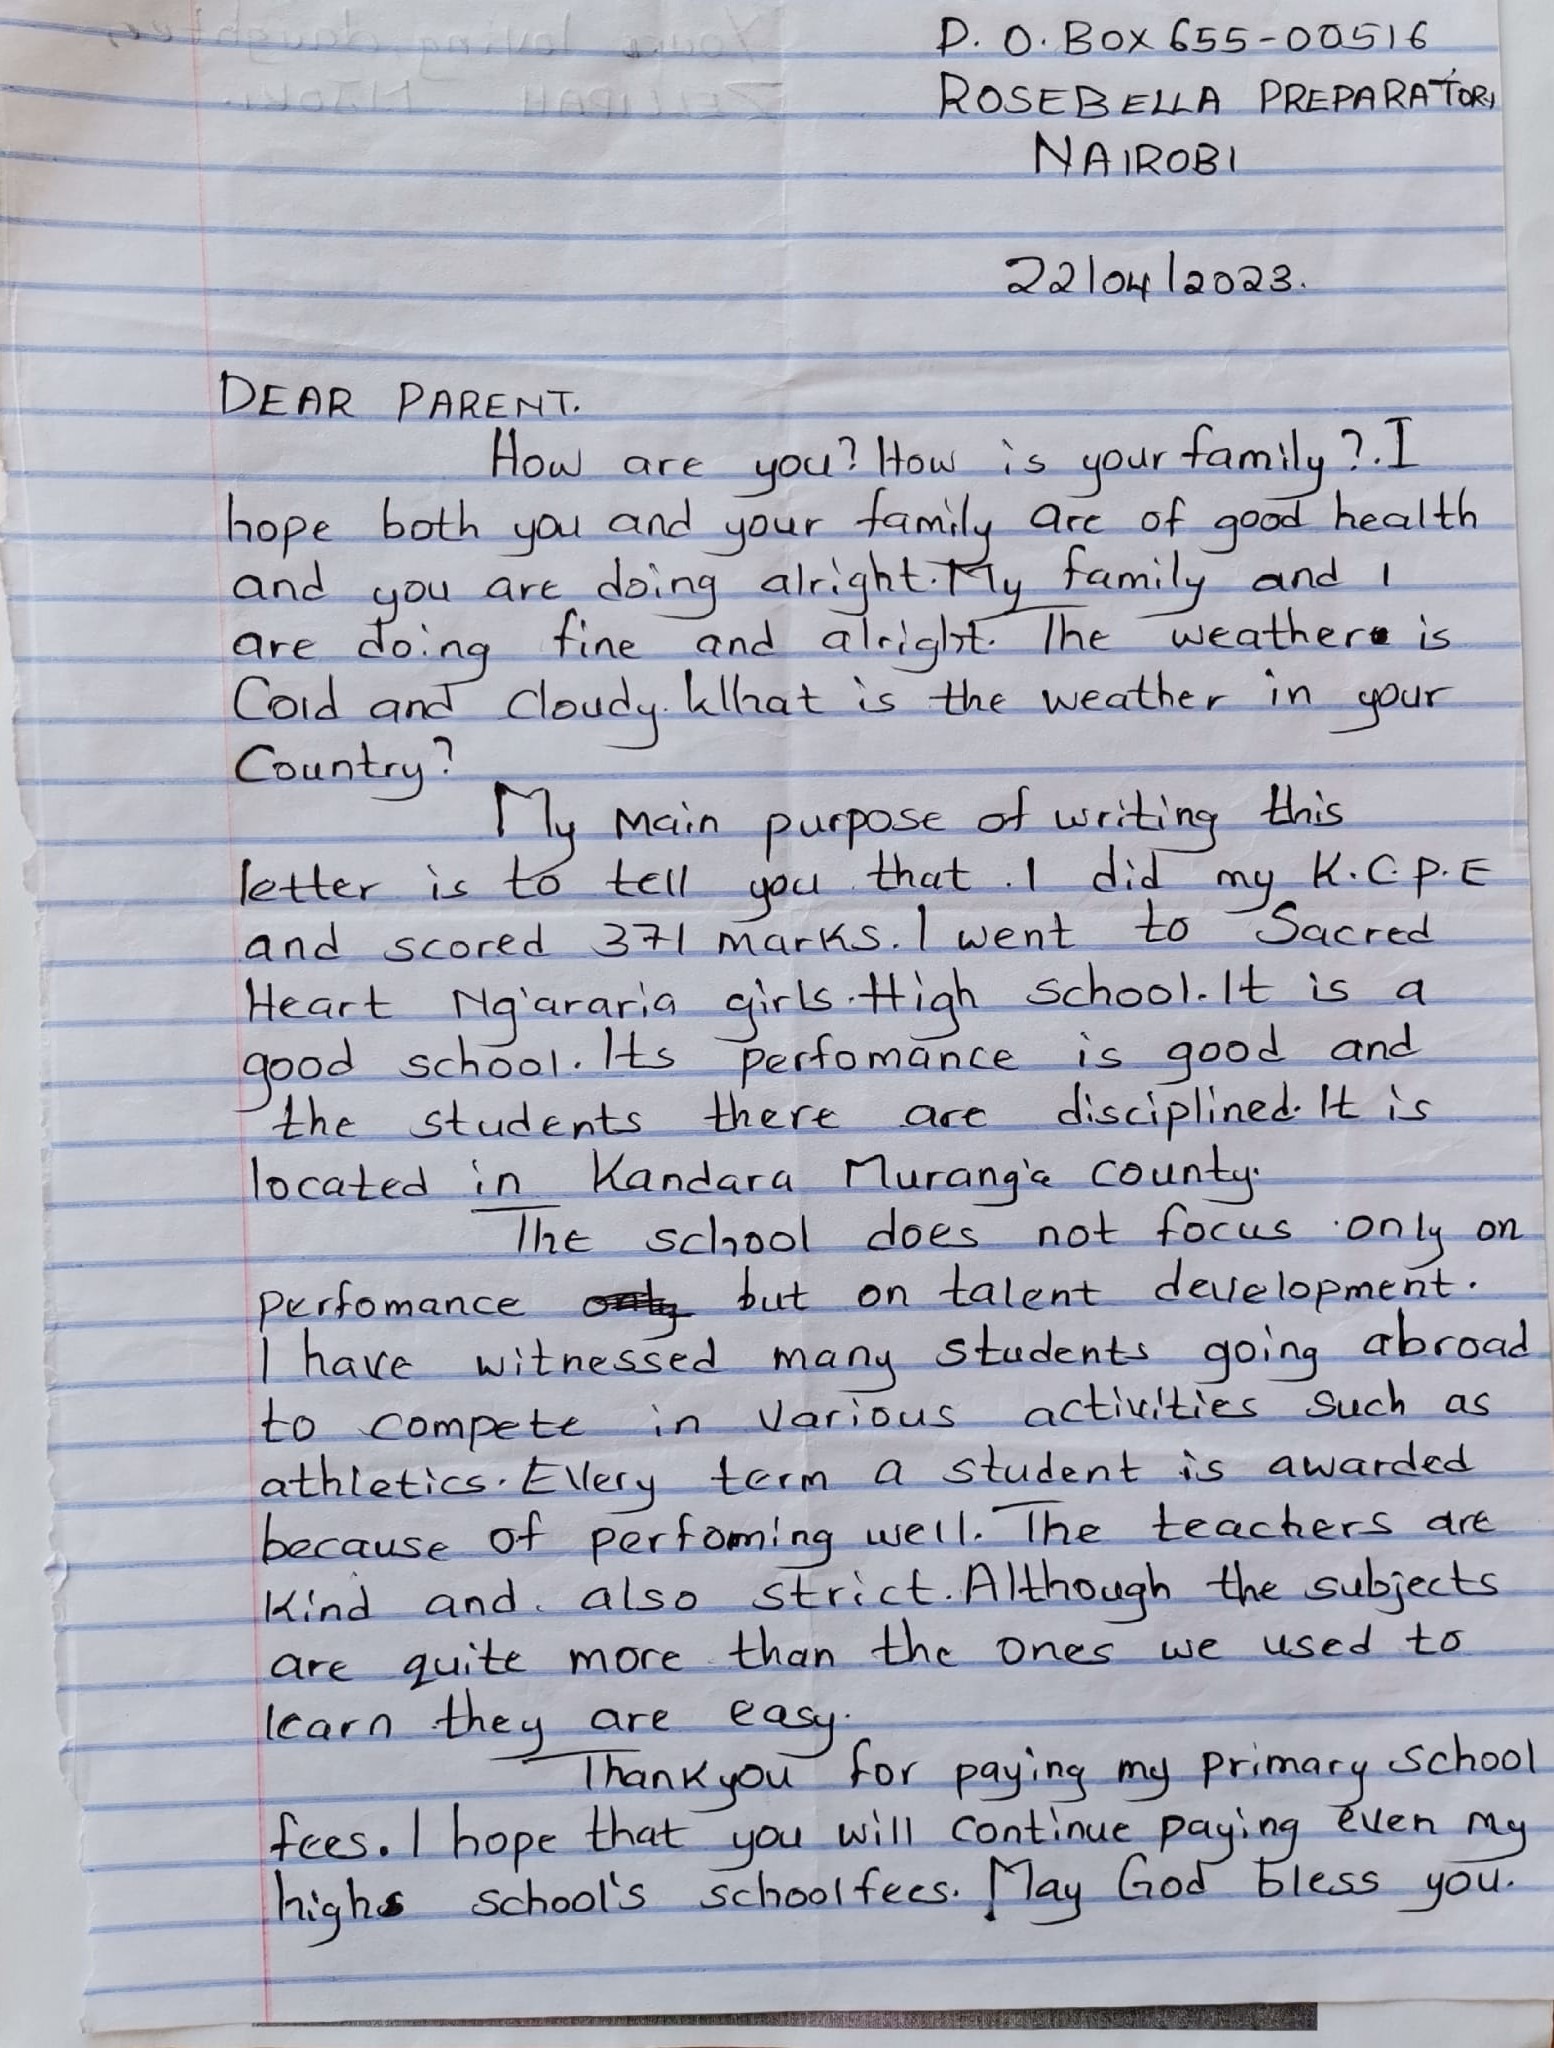 P. O. BOX 655-00516
ROSEBELLA PREPARATORY
NAIROBI
22/04/2023.
DEAR PARENT.
How are you? How is your family?. I
hope both you and your family are of good health
and you are doing alright. My family and I
are doing fine and alright. The weather is
Cold and cloudy. What is the weather in your
Country?
My main purpose of writing this
letter is to tell you that. I did my K.C.P.E
and scored 371 marks. I went to Sacred
Heart Ng'araria girls. High school. It is a
good school. Its perfomance is good and
the students there are disciplined. It is
located in Kandara Murang'a county.
The school does not focus only on
perfomance but on talent development.
I have witnessed many students going abroad
to compete in various activities such as
athletics. Every term a student is awarded
because of perfoming well. The teachers are
Kind and also strict. Although the subjects
are quite more than the ones we used to
learn they are easy.
Thankyou for paying my primary school
fees. I hope that you will continue paying even my
high school's schoolfees. May God bless you.